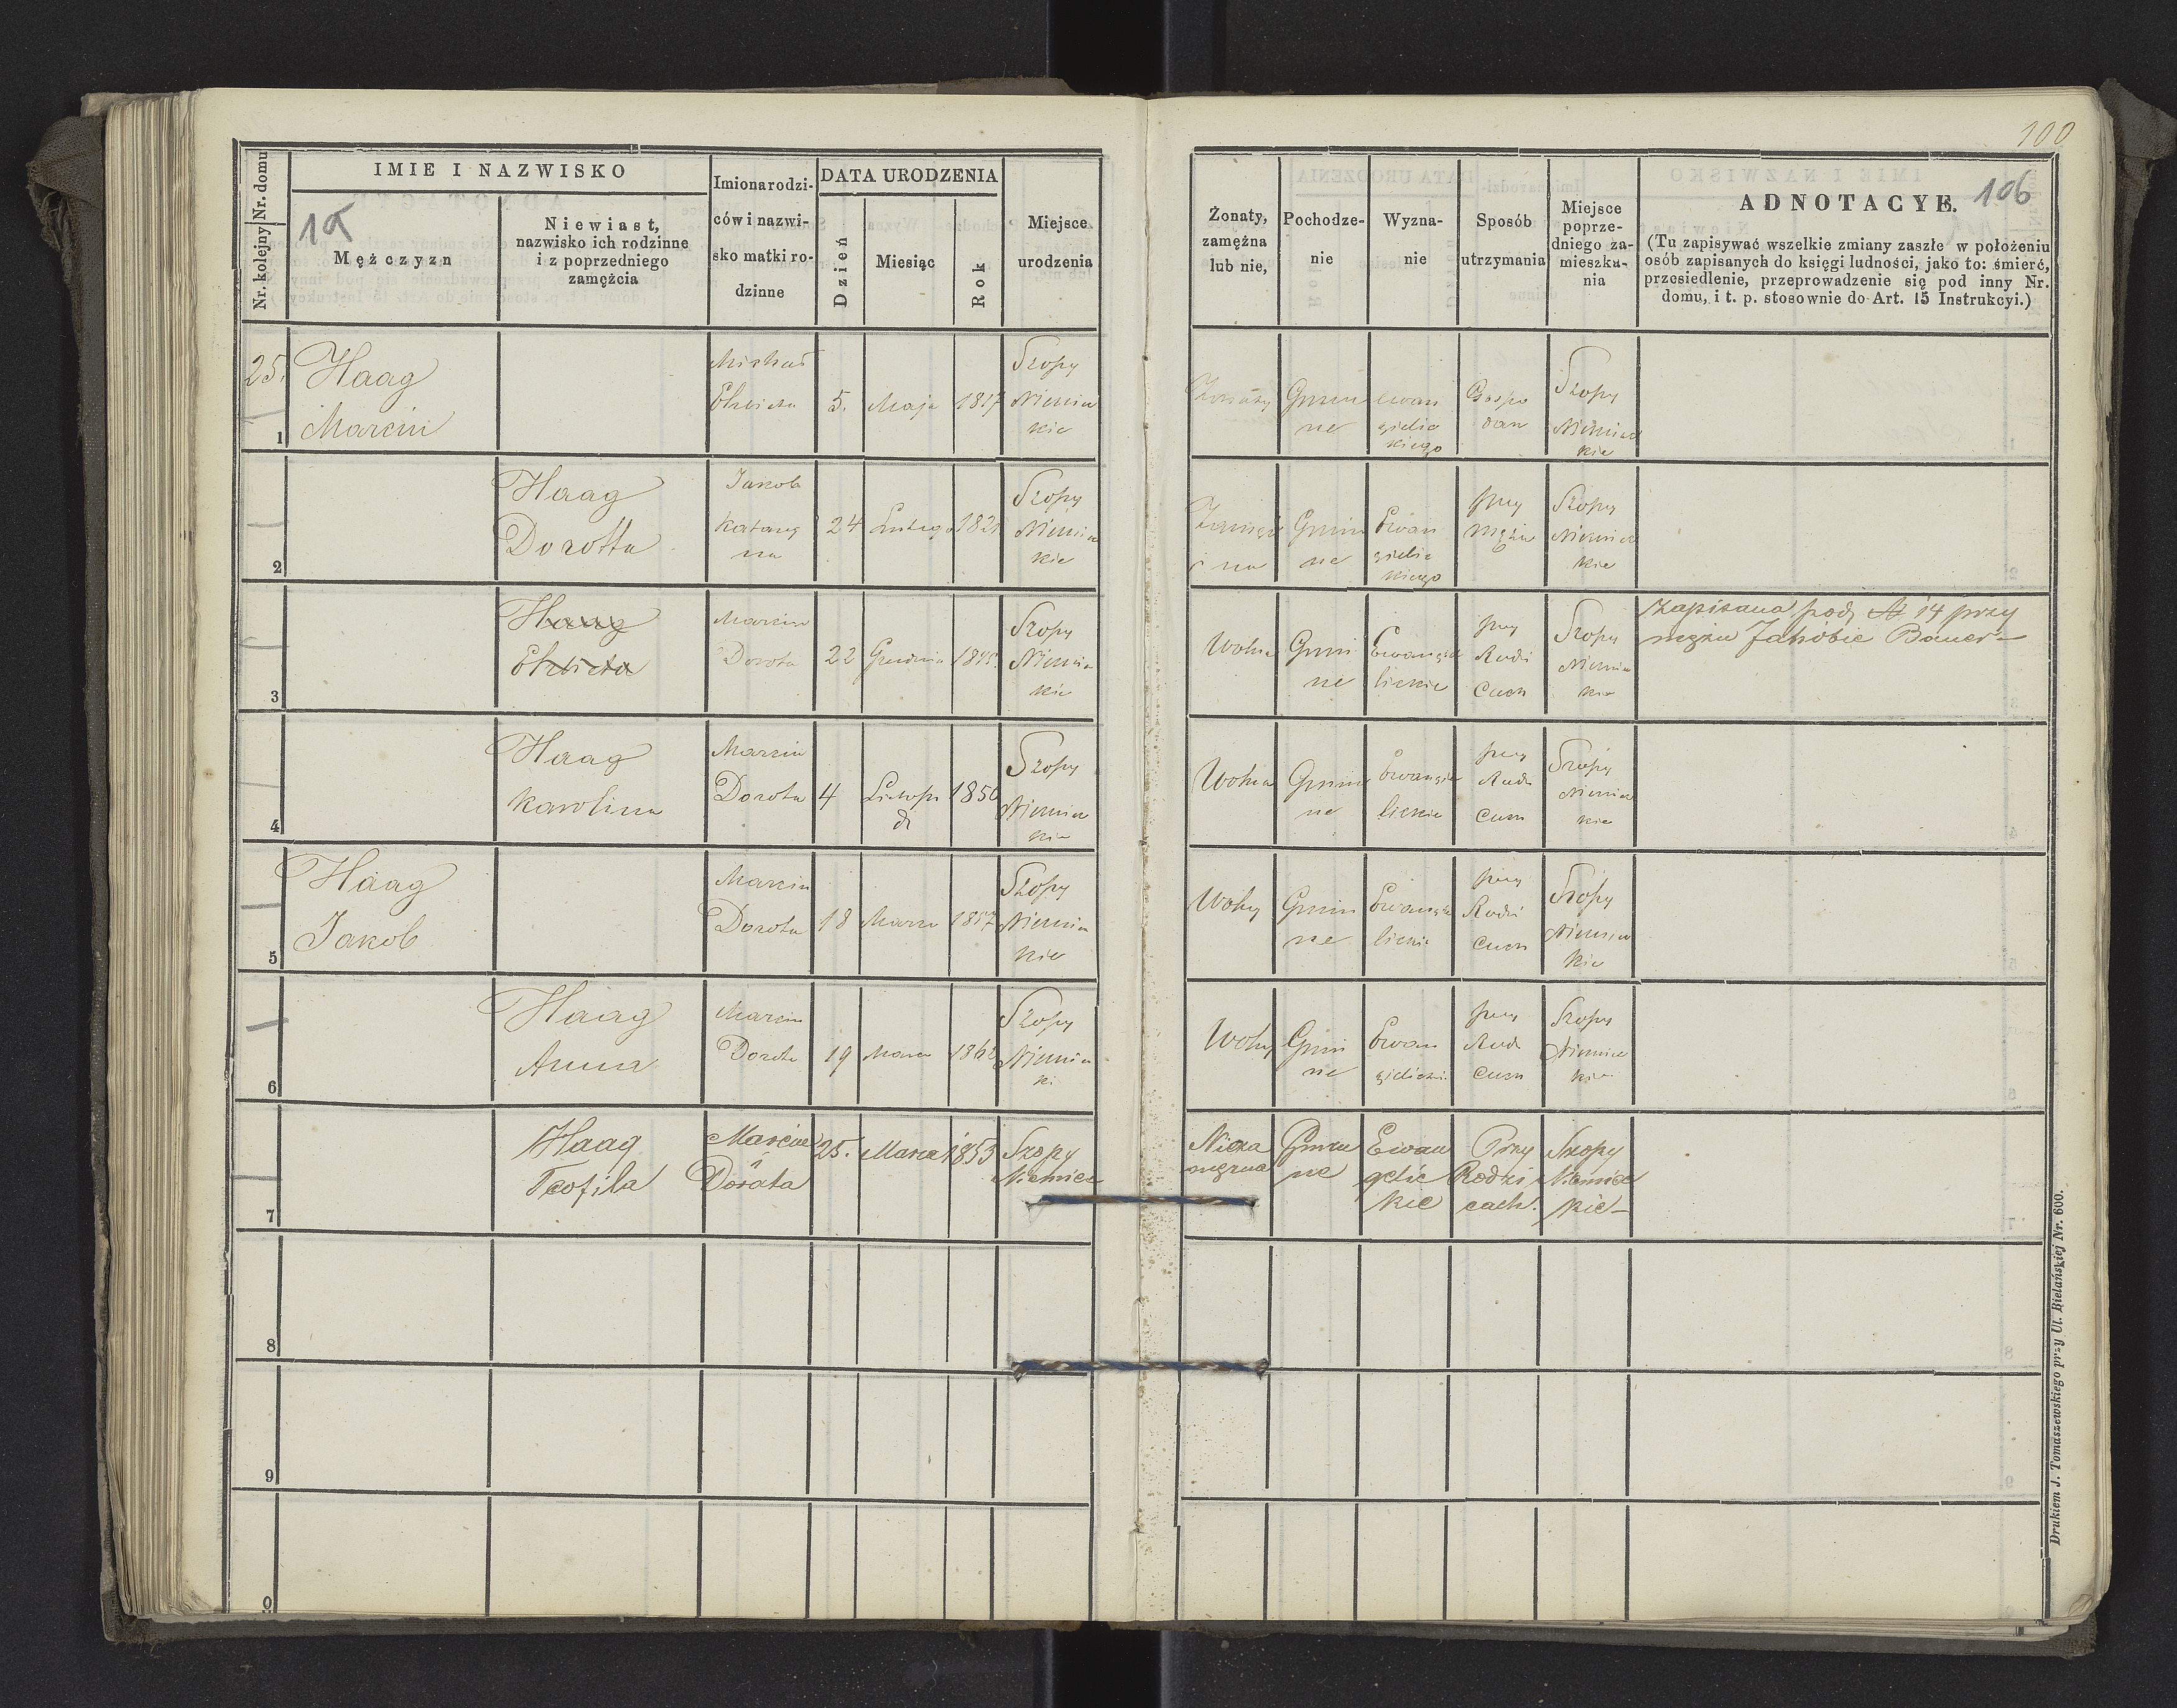 100
106
Nr. domu
Nr. kolejny
IMIE I NAZWISKO
Mężczyzn
Niewiast,
nazwisko ich rodzinne
i z poprzedniego
zamężcia
Imiona rodzi-
ców i nazwi-
sko matki ro-
dzinne
DATA URODZENIA
Dzień
Miesiąc
Rok
Miejsce
urodzenia
Żonaty,
zamężna
lub nie,
Pochodze-
nie
Wyzna-
nie
Sposób
utrzymania
Miejsce
poprze-
dniego za-
mieszka-
nia
ADNOTACYE.
(Tu zapisywać wszelkie zmiany zaszłe w położeniu
osób zapisanych do księgi ludności, jako to: śmierć,
przesiedlenie, przeprowadzenie się pod inny Nr.
domu, i t. p. stosownie do Art. 15 Instrukcyi.)
25.
1
Haag
Marcin
Michał
Elzbieta
5.
Maja
1817
Szopy
Niemie
kie
Żonaty
Gmin
ne
ewan
gielic
kiego
Gospo
darz
Szopy
Niemiec
kie
2
Haag
Dorotta
Jakob
Katarzy
na
24
Lutego
Szopy
Niemie
kie
Gmin
ne
Ewan
gielic
kiego
przy
mężu
Szopy
Niemiec
kie
3
Haag
Elzbieta
Marcin
Dorota
22
Grudnia
Szopy
Niemie
kie
Wolna
Gmin
ne
Ewangie
lickie
przy
Rodzi
cach
Szopy
Niemie
kie
Zapisana pod № 14 przy
mężu Jakóbie Bauer—
4
Haag
Karolina
Marcin
Dorota
4
Listopa
da
1850
Szopy
Niemie
kie
Wolna
Gmin
ne
Ewangie
lickie
przy
Rodzi
cach
Szopy
Niemiec
kie
5
Haag
Jakob
Marcin
Dorota
18
Marca
1857
Szopy
Niemie
kie
Wolny
Gmin
ne
Ewangie
lickie
przy
Rodzi
cach
Szopy
Niemie
kie
6
Haag
Anna
Marcin
Dorota
19
Marca
1862
Szopy
Niemie
ki
Wolny
Gmin
ne
Ewan
gielickie
przy
Rodzi
cach
Szopy
Niemiec
kie
7
Haag
Teofila
Marcin
i
Dorata
25.
Marca
1853
Szopy
Niemiec
Nieza
mężna
Gmin
ne
Ewan
gelic
kie
Przy
Rodzi
cach.
Szopy
Niemiec
kie—
8
9
0
Drukiem J. Tomaszewskiego przy Ul. Bielańskiej Nr. 600.